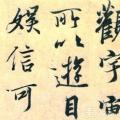 觀宇宙
所以遊目
娛信可